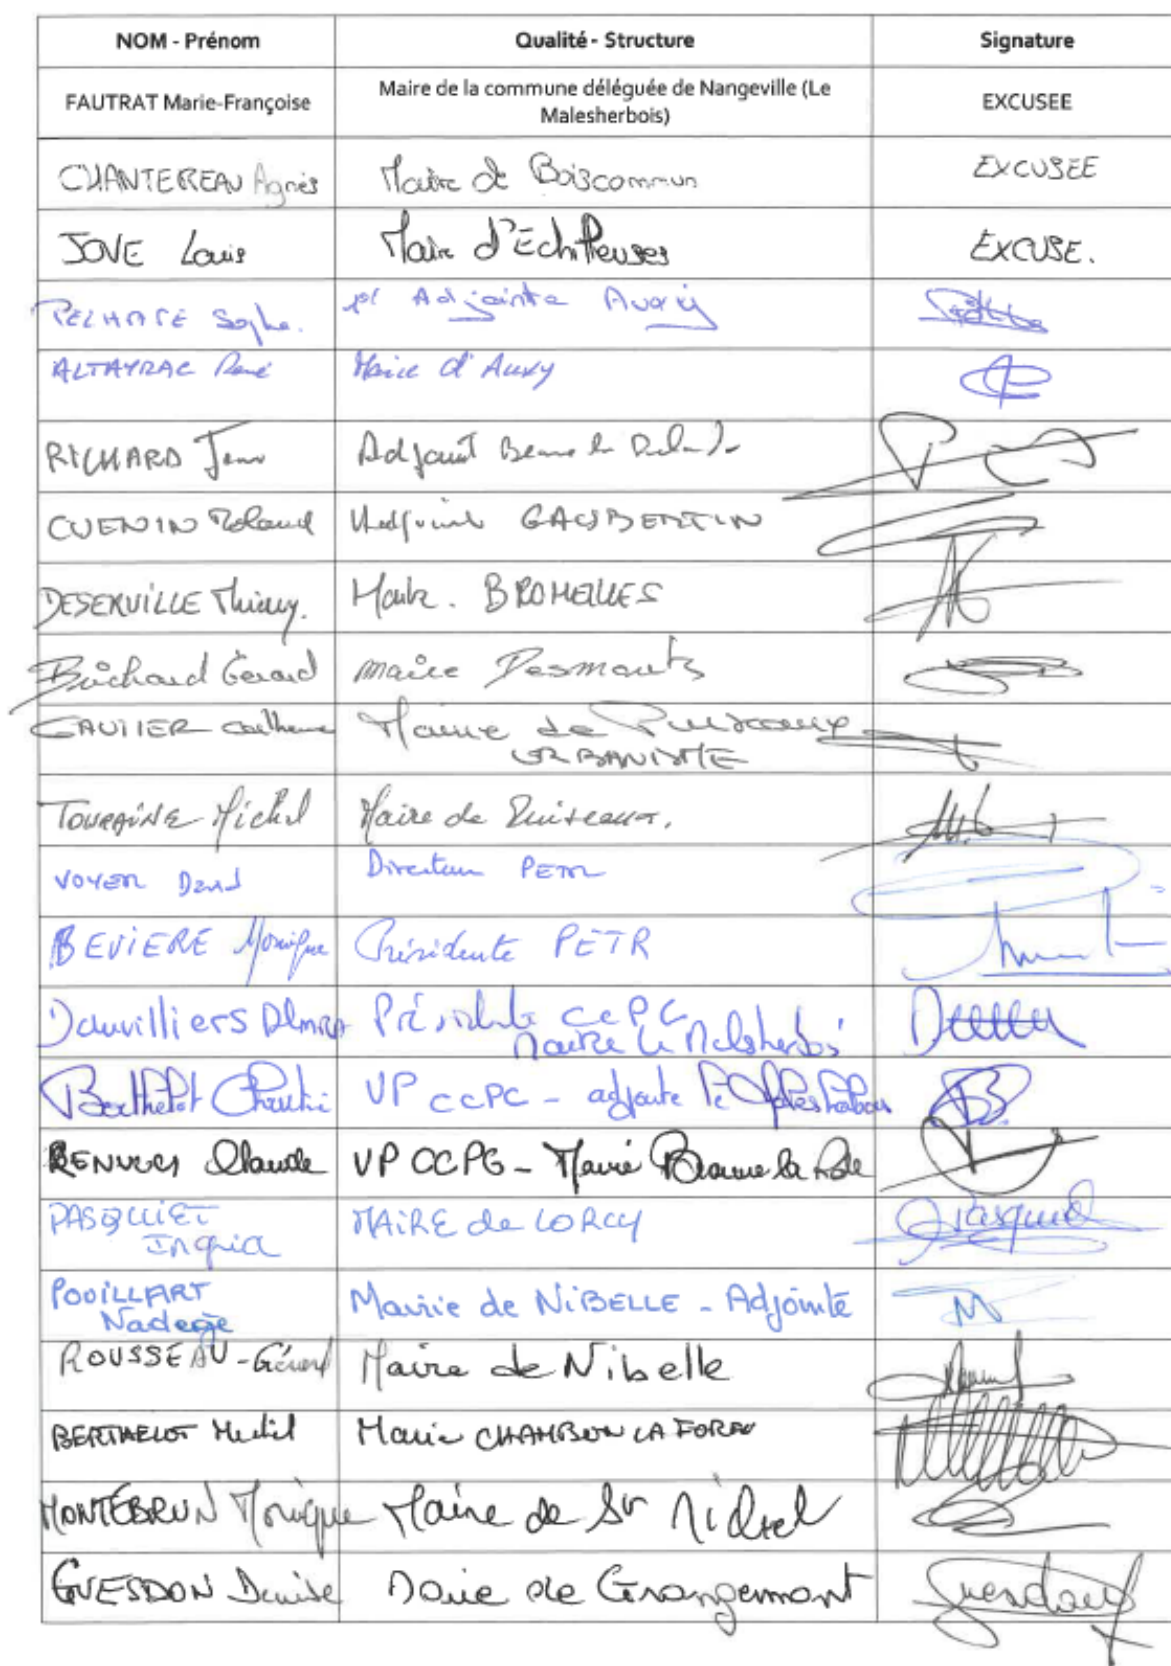 NOM - Prénom Qualité - Structure Signature
FAUTRAT Marie-Françoise Maire de la commune déléguée de Nangeville (Le
Malesherbois) EXCUSEE
CHANTEREAU Agnès Maire de Boiscommun EXCUSEE
JOVE Louis Maire d'Echilleuses EXCUSE.
PELHATE Sophie. Adjointe Auxy
ALTAYRAC René Maire d'Auxy
RICHARD Jean Adjoint Beaune la Rolande
CUENIN Roland Adjoint GAUBERTIN
DESERVILLE Thierry. Maire. BROMEILLES
Brichard Gérard maire Desmonts
GAUTIER Catherine Mairie de Puiseaux
URBANISME
TOURAINE Michel Maire de Puiseaux.
VOYER David Directeur PETR
BEVIERE Monique Présidente PETR
Dauvilliers Delmira Présidente CCPG
Maire Le Malesherbois
Berthelot Christine VP CCPG - adjointe le Malesherbois
RENUCCI Claude VP CCPG - Maire Beaune la Rolande
PASQUIET
Ingrid MAIRE de LORCY Pasquiet
POUILLART
Nadege Mairie de NIBELLE - Adjointe
ROUSSEAU - Gérard Maire de Nibelle
BERTHELOT Michel Maire CHAMBON LA FORET
MONTEBRUN Monique Maire de St Michel
GUESDON Denise Maire de Grangermont Guesdon